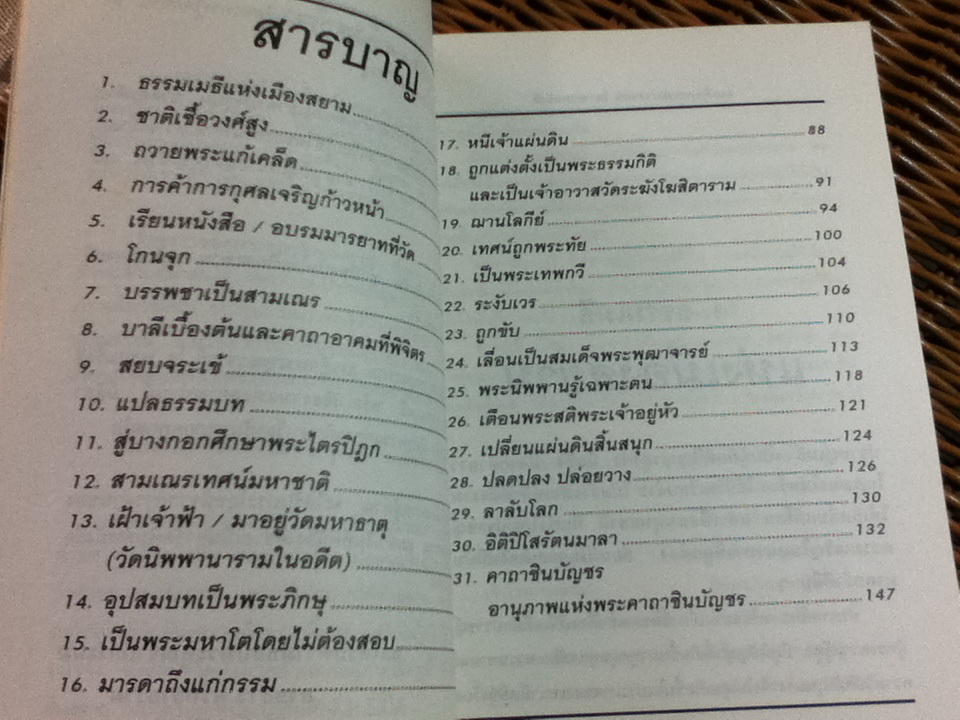 สารบาญ
1. ธรรมเมธีแห่งเมืองสยาม
2. ชาติเชื้อวงศ์สูง
3. ถวายพระแก้เคล็ด
4. การค้าการกุศลเจริญก้าวหน้า
5. เรียนหนังสือ / อบรมมารยาทที่วัด
6. โกนจุก
7. บรรพชาเป็นสามเณร
8. บาลีเบื้องต้นและคาถาอาคมที่พิจิตร
9. สยบจระเข้
10. แปลธรรมบท
11. สู่บางกอกศึกษาพระไตรปิฎก
12. สามเณรเทศน์มหาชาติ
13. เฝ้าเจ้าฟ้า / มาอยู่วัดมหาธาตุ
(วัดนิพพานารามในอดีต)
14. อุปสมบทเป็นพระภิกษุ
15. เป็นพระมหาโตโดยไม่ต้องสอบ
16. มารดาถึงแก่กรรม
17. หนีเจ้าแผ่นดิน 88
18. ถูกแต่งตั้งเป็นพระธรรมกิติ
และเป็นเจ้าอาวาสวัดระฆังโฆสิตาราม 91
19. ฌานโลกีย์ 94
20. เทศน์ถูกพระทัย 100
21. เป็นพระเทพกวี 104
22. ระงับเวร 106
23. ถูกขับ 110
24. เลื่อนเป็นสมเด็จพระพุฒาจารย์ 113
25. พระนิพพานรู้เฉพาะตน 118
26. เตือนพระสติพระเจ้าอยู่หัว 121
27. เปลี่ยนแผ่นดินสิ้นสนุก 124
28. ปลดปลง ปล่อยวาง 126
29. ลาลับโลก 130
30. อิติปิโสรัตนมาลา 132
31. คาถาชินบัญชร
อานุภาพแห่งพระคาถาชินบัญชร 147